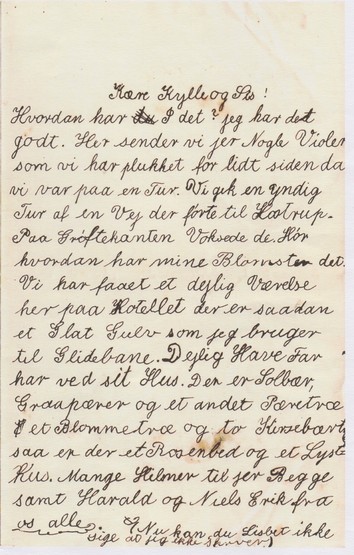 Kære Kylle og Sis!
Hvordan har du I det? jeg har det
godt. Her sender vi jer Nogle Violer
som vi har plukket for lidt siden da
vi var paa en Tur. Vi gik en yndig
Tur af en Vej der førte til Høstrup.
Paa Grøftekanten Voksede de. Hør
hvordan har mine Blomster det.
Vi har faaet et dejlig Værelse
her paa Hotellet der er saadan
et Glat Gulv som jeg bruger
til Glidebane. Dejlig Have Far
har ved sit Hus. Der er Solbær,
Graapærer og et andet Pæretræ
et Blommetræ og to Kirsebært
saa er der et Rosenbed og et Lyst
Hus. Mange Hilsner til jer Begge
samt Harald og Niels Erik fra
os alle.
Nu kan du Lisbet ikke
sige at jeg ikke skriver